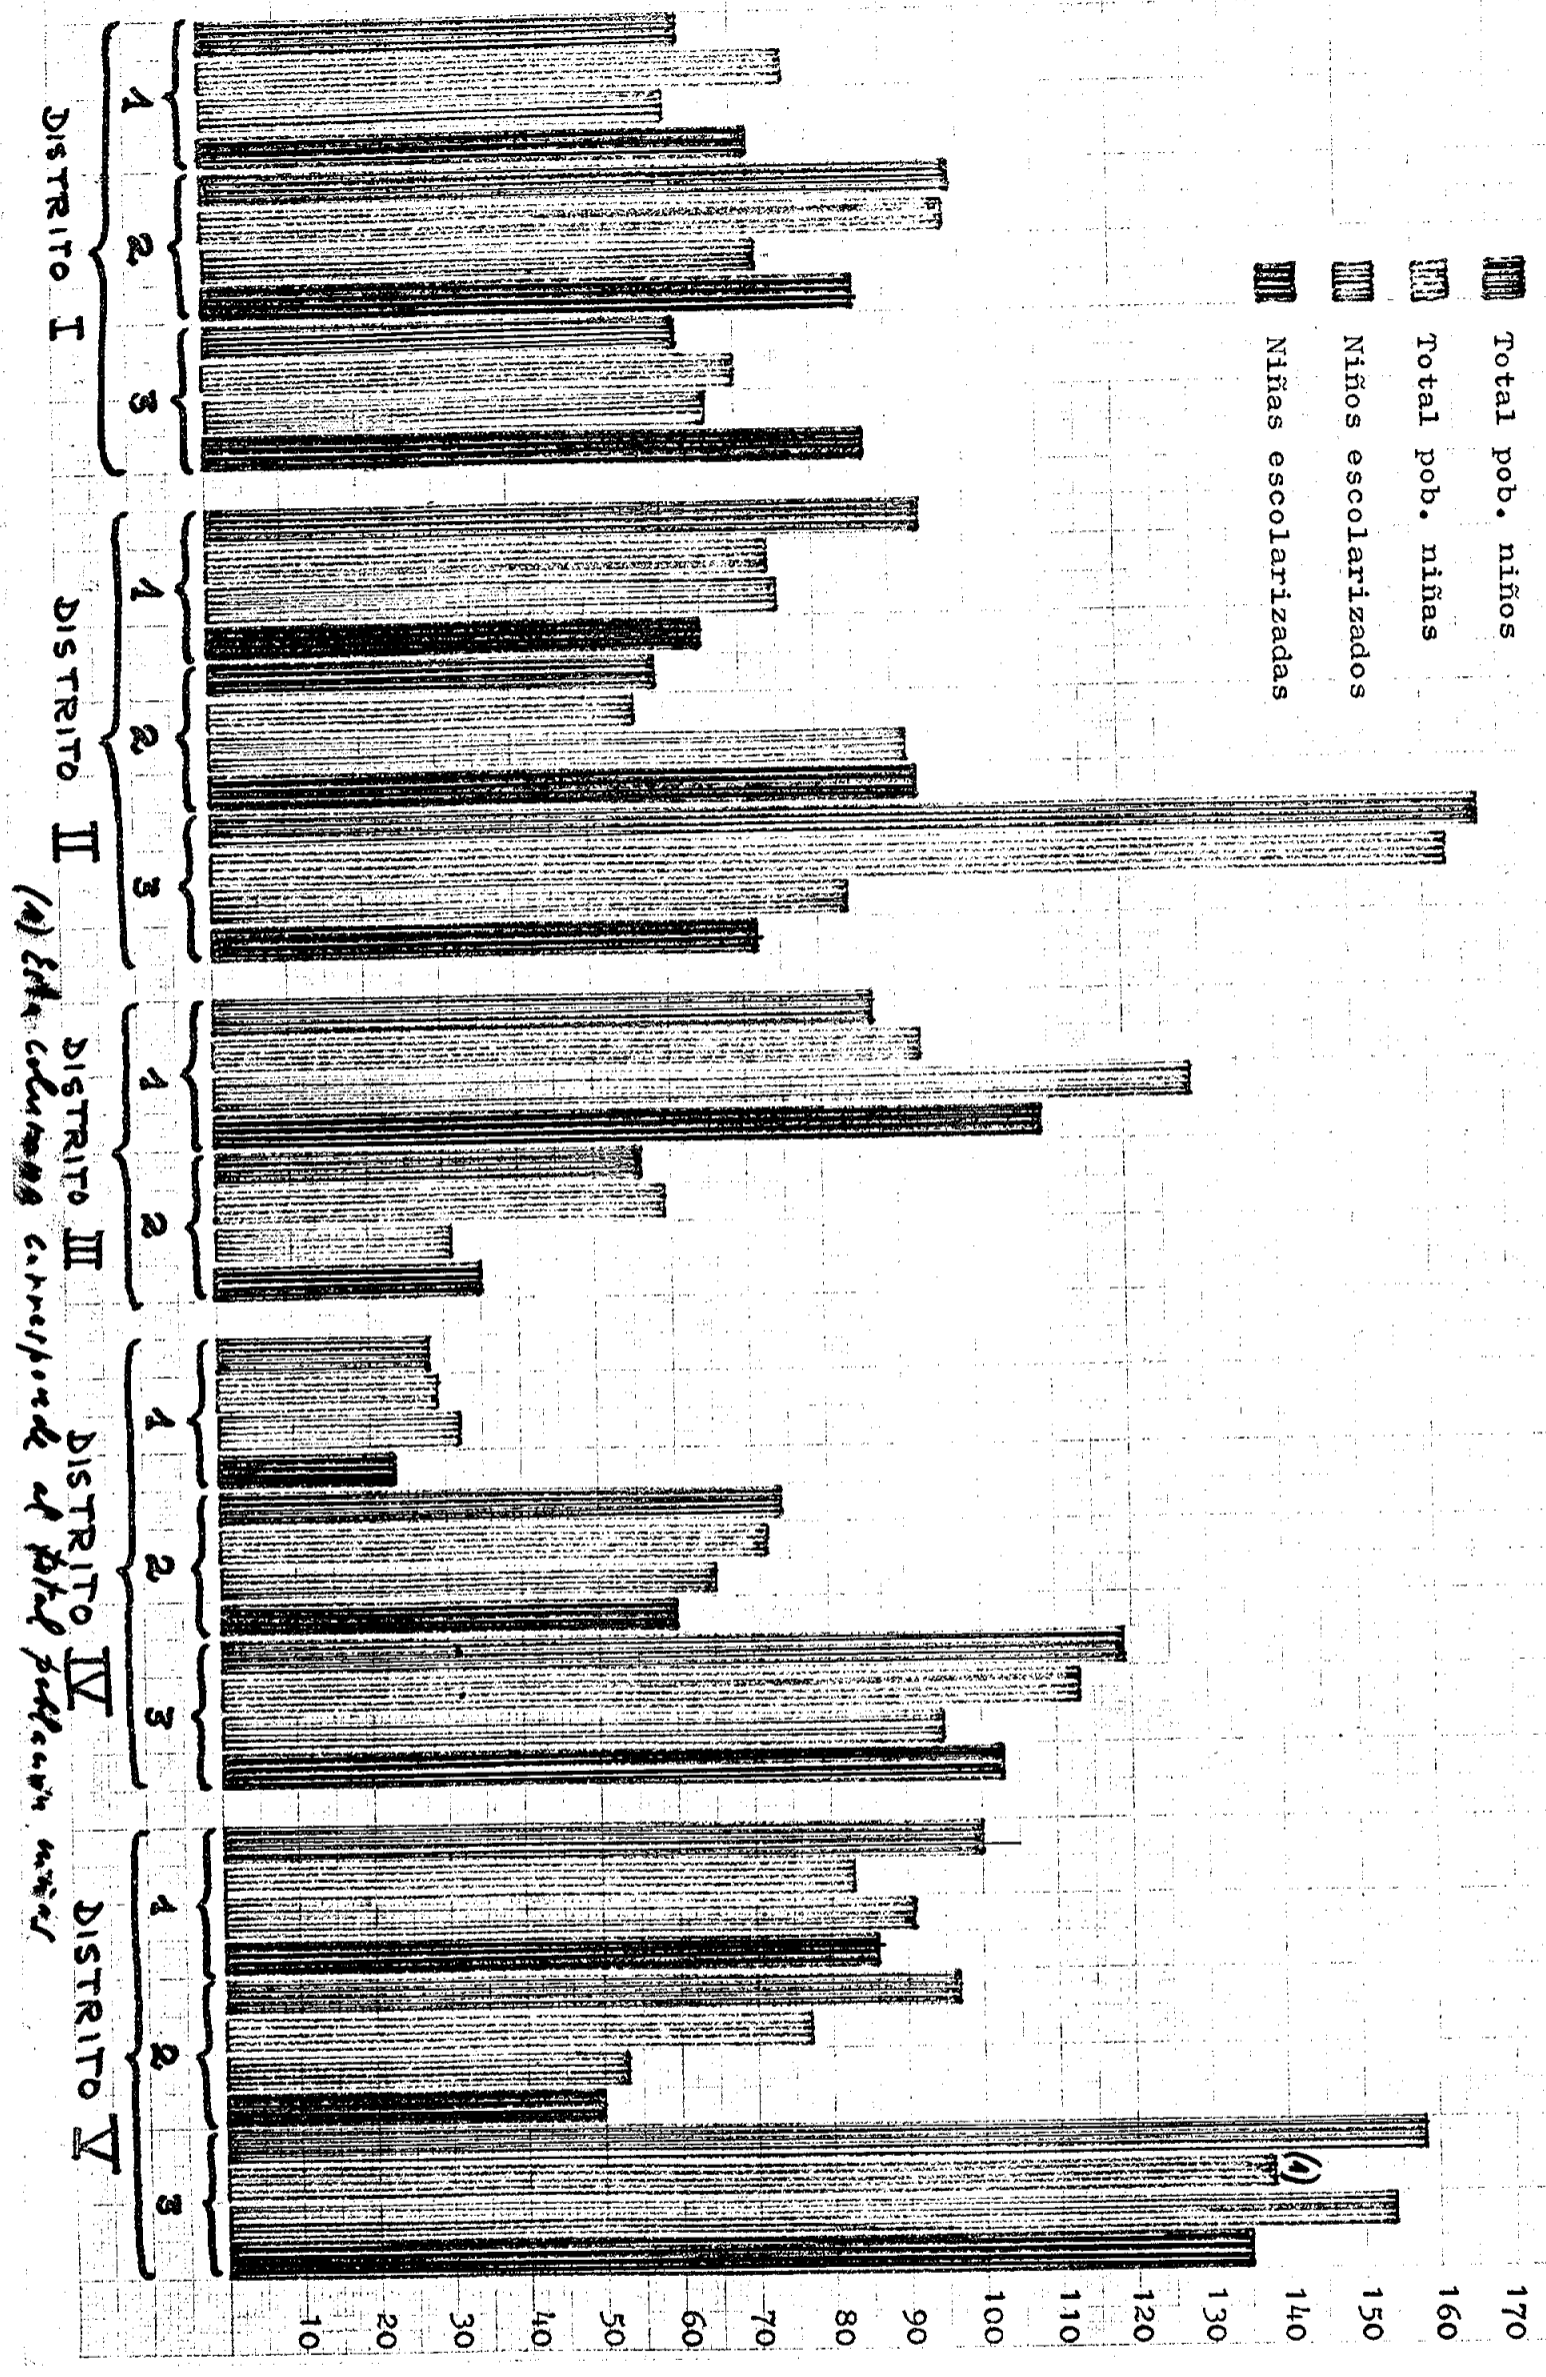 Total pob. niños
Total pob. niñas
Niños escolarizados
Niñas escolarizadas
170
160
150
140
130
120
110
100
90
80
70
60
50
40
30
20
10
(1)
1 2 3 1 2 3 1 2 1 2 3 1 2 3
DISTRITO I DISTRITO II DISTRITO III DISTRITO IV DISTRITO V
(1) Esta columna corresponde al total población niñas